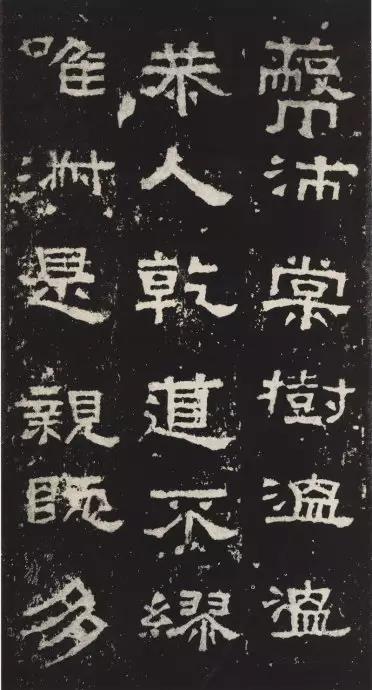 蔽沛棠樹温温
恭人乾道不繆
唯淑是親既多